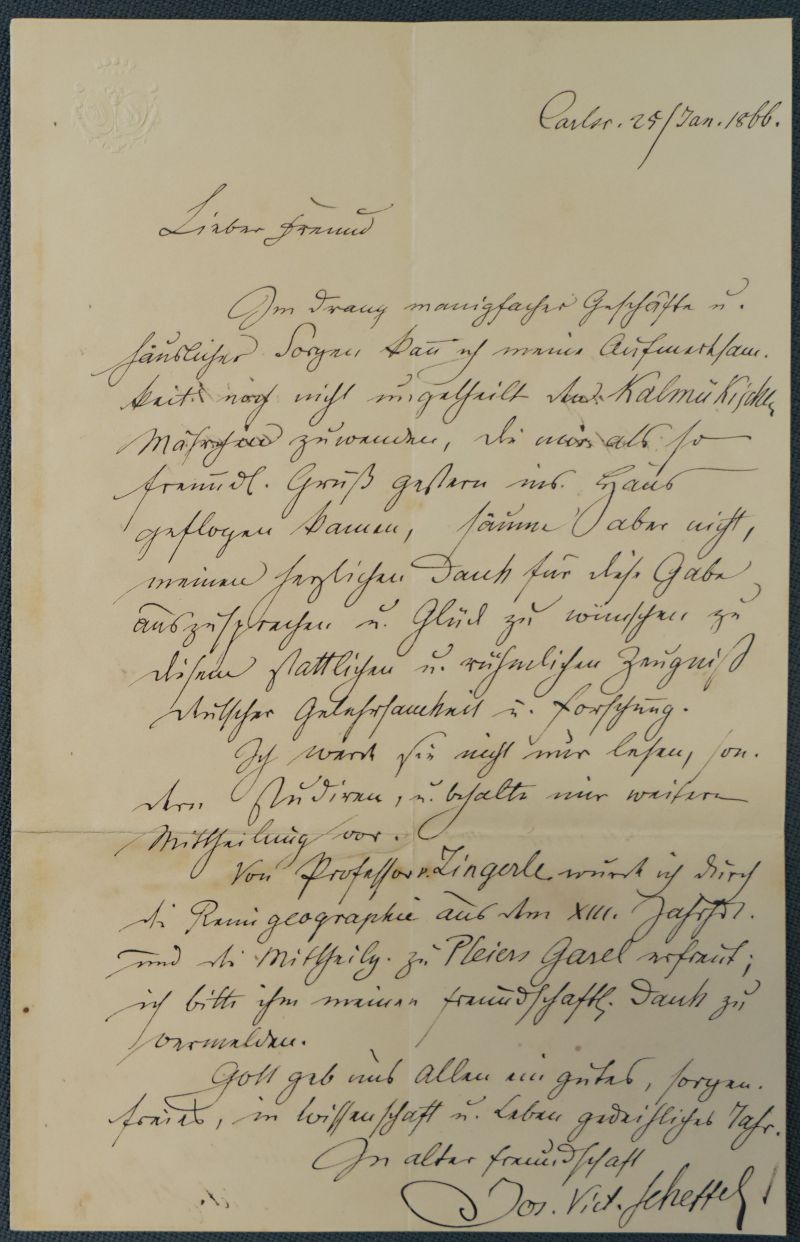 Carlsr. 25/Jan. 1866.
Lieber Freund
Im Drang manigfacher Geschäfte u.
häuslicher Sorgen kan̅ ich meine Aufmerksam-
keit noch nicht ungetheilt den Kalmükischen
Mährchen zuwenden, die mir als so
freundl. Gruß gestern ins Haus
geflogen kamen, säume aber nicht,
meinen herzlichen Dank für diese Gabe
auszusprechen u. Glück zu wünschen zu
diesem stattlichen u. rühmlichen Zeugniß
deutscher Gelehrsamkeit u. Forschung.
Ich werde sie nicht nur lesen, son-
dern studiren, u. behalte mir weitere
Mittheilung vor.
Von Professor v. Zingerle wurde ich durch
die Reimgeographie aus dem XIII. Jahrhdt.
und die Mittheilg. zu Pleiers Garel erfreut;
ich bitte ihm meinen freundschaftl. Dank zu
vermelden.
Gott geb uns Allen ein gutes, sorgen-
freies, in Wissenschaft u. Leben gedeihliches Jahr.
In alter Freundschaft
Jos. Vict. Scheffel